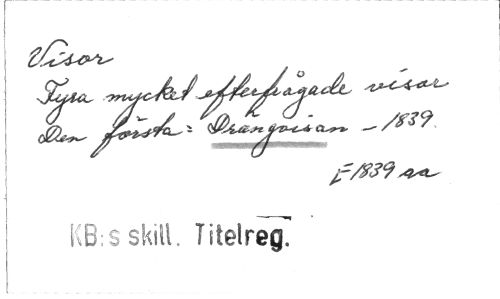 Visor
Fyra mycket efterfrågade visor
Den första: Drängvisan – 1839.
E 1839 aa
KB:s skill. Titelreg.